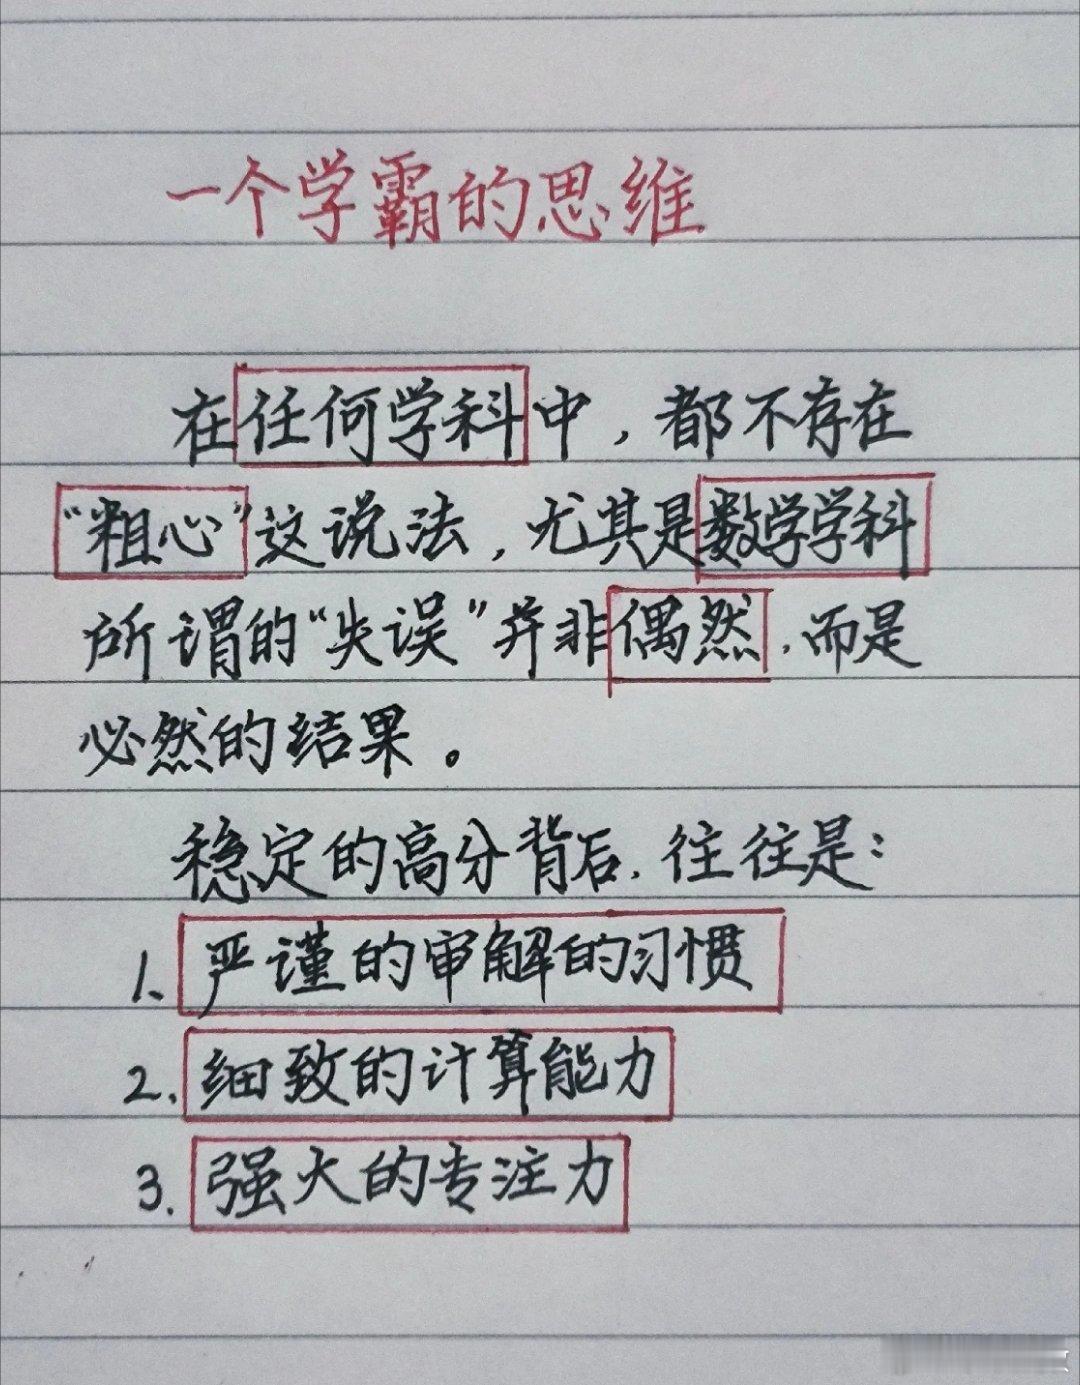 一个学霸的思维
在任何学科中，都不存在
“粗心”这说法，尤其是数学学科
所谓的“失误”并非偶然，而是
必然的结果。
稳定的高分背后，往往是：
1、严谨的审解的习惯
2、细致的计算能力
3、强大的专注力